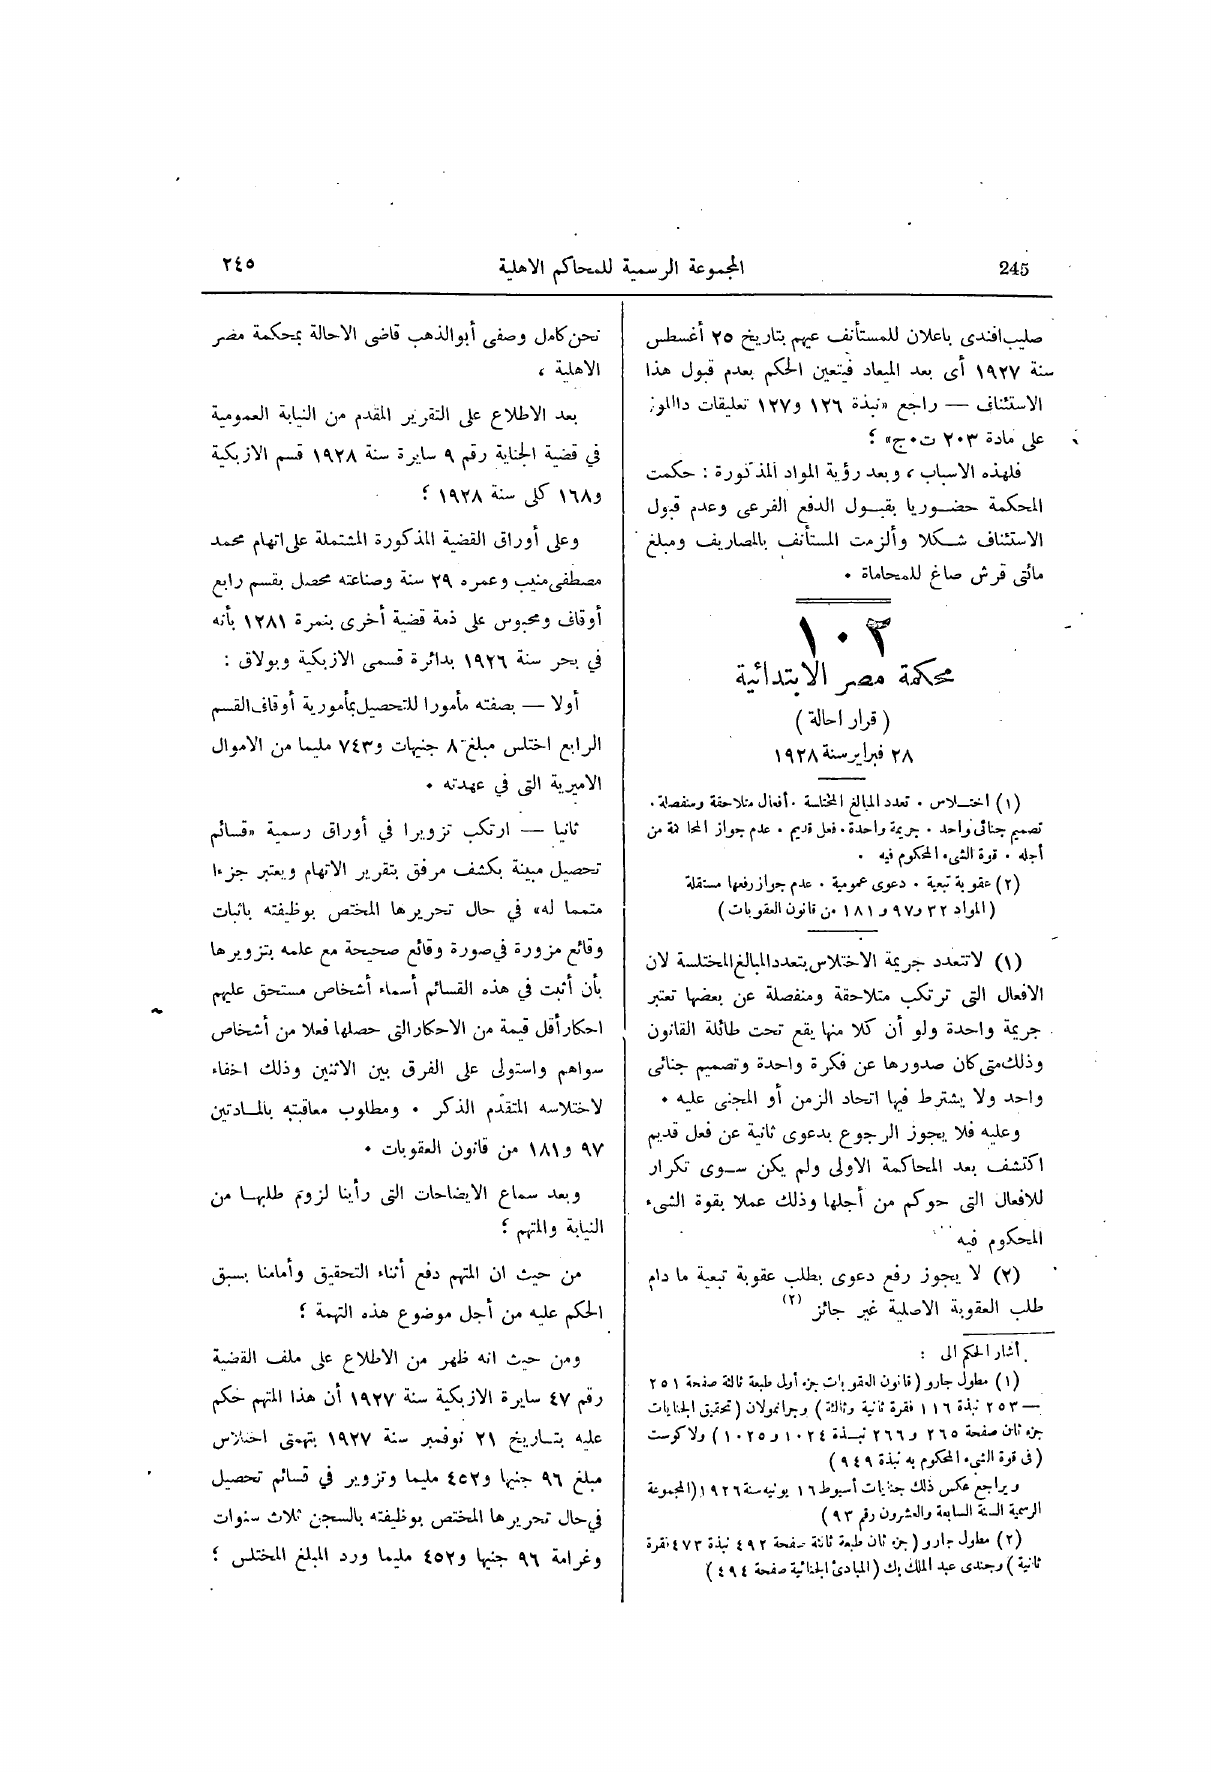 245
المجموعة الرسمية للمحاكم الاهلية
٢٤٥
صليب افندى باعلان للمستأنف عيهم بتاريخ ٢٥ أغسطس
سنة ١٩٢٧ أى بعد الميعاد فيتعين الحكم بعدم قبول هذا
الاستئناف — راجع «نبذة ١٢٦ و١٢٧ تعليقات داللوز
على مادة ٢٠٣ ت.ج» ؛
فلهذه الاسباب ، وبعد رؤية المواد المذكورة : حكمت
المحكمة حضوريا بقبول الدفع الفرعى وعدم قبول
الاستئناف شكلا وألزمت المستأنف بالمصاريف ومبلغ
مائتى قرش صاغ للمحاماة .
١٠٣
محكمة مصر الابتدائية
( قرار احالة )
٢٨ فبراير سنة ١٩٢٨
(١) اختلاس . تعدد المبالغ المختلسة . أفعال متلاحقة ومنفصلة .
تصميم جنائى واحد . جريمة واحدة . فعل قديم . عدم جواز المحاكمة من
أجله . قوة الشىء المحكوم فيه .
(٢) عقوبة تبعية . دعوى عمومية . عدم جواز رفعها مستقلة
( المواد ٣٢ و٩٧ و١٨١ من قانون العقوبات )
(١) لا تتعدد جريمة الاختلاس بتعدد المبالغ المختلسة لان
الافعال التى ترتكب متلاحقة ومنفصلة عن بعضها تعتبر
جريمة واحدة ولو أن كلا منها يقع تحت طائلة القانون
وذلك متى كان صدورها عن فكرة واحدة وتصميم جنائى
واحد ولا يشترط فيها اتحاد الزمن أو المجنى عليه .
وعليه فلا يجوز الرجوع بدعوى ثانية عن فعل قديم
اكتشف بعد المحاكمة الاولى ولم يكن سوى تكرار
للافعال التى حوكم من أجلها وذلك عملا بقوة الشىء
المحكوم فيه
(٢) لا يجوز رفع دعوى بطلب عقوبة تبعية ما دام
طلب العقوبة الاصلية غير جائز (٢)
أشار الحكم الى :
(١) مطول جارو ( قانون العقوبات جزء أول طبعة ثالثة صفحة ٢٥١
— ٢٥٣ نبذة ١١٦ فقرة ثانية وثالثة ) وجرانمولان ( تحقيق الجنايات
جزء ثان صفحة ٢٦٥ و٢٦٦ نبذة ١٠٢٤ و١٠٢٥ ) ولاكوست
( فى قوة الشىء المحكوم به نبذة ٩٤٩ )
ويراجع عكس ذلك جنايات أسيوط ١٦ يونيه سنة ١٩٢٦ (المجموعة
الرسمية السنة السابعة والعشرون رقم ٩٣ )
(٢) مطول جارو ( جزء ثان طبعة ثالثة صفحة ٤٩٢ نبذة ٤٧٣ فقرة
ثانية ) وجندى عبد الملك بك ( المبادئ الجنائية صفحة ٤٩٤ )
نحن كامل وصفى أبو الذهب قاضى الاحالة بمحكمة مصر
الاهلية ،
بعد الاطلاع على التقرير المقدم من النيابة العمومية
فى قضية الجناية رقم ٩ سايرة سنة ١٩٢٨ قسم الازبكية
و١٦٨ كلى سنة ١٩٢٨ ؛
وعلى أوراق القضية المذكورة المشتملة على اتهام محمد
مصطفى منيب وعمره ٢٩ سنة وصناعته محصل بقسم رابع
أوقاف ومحبوس على ذمة قضية أخرى بنمرة ١٢٨١ بأنه
فى بحر سنة ١٩٢٦ بدائرة قسمى الازبكية وبولاق :
أولا — بصفته مأمورا للتحصيل بمأمورية أوقاف القسم
الرابع اختلس مبلغ ٨ جنيهات و٧٤٣ مليما من الاموال
الاميرية التى فى عهدته .
ثانيا — ارتكب تزويرا فى أوراق رسمية «قسائم
تحصيل مبينة بكشف مرفق بتقرير الاتهام ويعتبر جزءا
متمما له» فى حال تحريرها المختص بوظيفته باثبات
وقائع مزورة فى صورة وقائع صحيحة مع علمه بتزويرها
بأن أثبت فى هذه القسائم أسماء أشخاص مستحق عليهم
احكار أقل قيمة من الاحكار التى حصلها فعلا من أشخاص
سواهم واستولى على الفرق بين الاثنين وذلك اخفاء
لاختلاسه المتقدم الذكر . ومطلوب معاقبته بالمادتين
٩٧ و١٨١ من قانون العقوبات .
وبعد سماع الايضاحات التى رأينا لزوم طلبها من
النيابة والمتهم ؛
من حيث ان المتهم دفع أثناء التحقيق وأمامنا بسبق
الحكم عليه من أجل موضوع هذه التهمة ؛
ومن حيث انه ظهر من الاطلاع على ملف القضية
رقم ٤٧ سايرة الازبكية سنة ١٩٢٧ أن هذا المتهم حكم
عليه بتاريخ ٢١ نوفمبر سنة ١٩٢٧ بتهمتى اختلاس
مبلغ ٩٦ جنيها و٤٥٢ مليما وتزوير فى قسائم تحصيل
فى حال تحريرها المختص بوظيفته بالسجن ثلاث سنوات
وغرامة ٩٦ جنيها و٤٥٢ مليما ورد المبلغ المختلس ؛